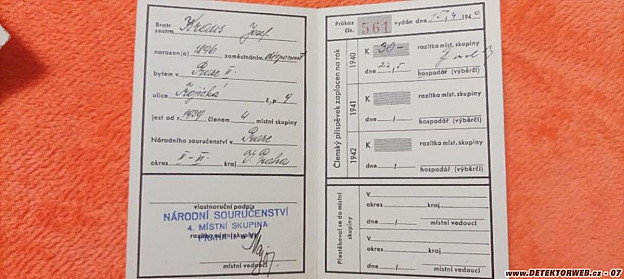 Bratr
sestra Kraus Josef
narozen(a) 1896 zaměstnáním
bytem v Praze II.
ulice č. p. 9
jest od r. 1939 členem 4 místní skupiny
Národního souručenství v Praze
okres II-VI. kraj Praha
vlastnoruční podpis
NÁRODNÍ SOURUČENSTVÍ
4. MÍSTNÍ SKUPINA
razítko místní skupiny
místní vedoucí
Průkaz čís. 561 vydán dne 194
Členský příspěvek zaplacen na rok
1940
K 30- razítko míst. skupiny
dne hospodář (výběrčí)
1941
K razítko míst. skupiny
dne / hospodář (výběrčí)
1942
K razítko míst. skupiny
dne / hospodář (výběrčí)
Přestěhoval se do místní skupiny
V
okres kraj
dne / místní vedoucí
V
okres kraj
dne / místní vedoucí
www.DETEKTORWEB.cz - 07